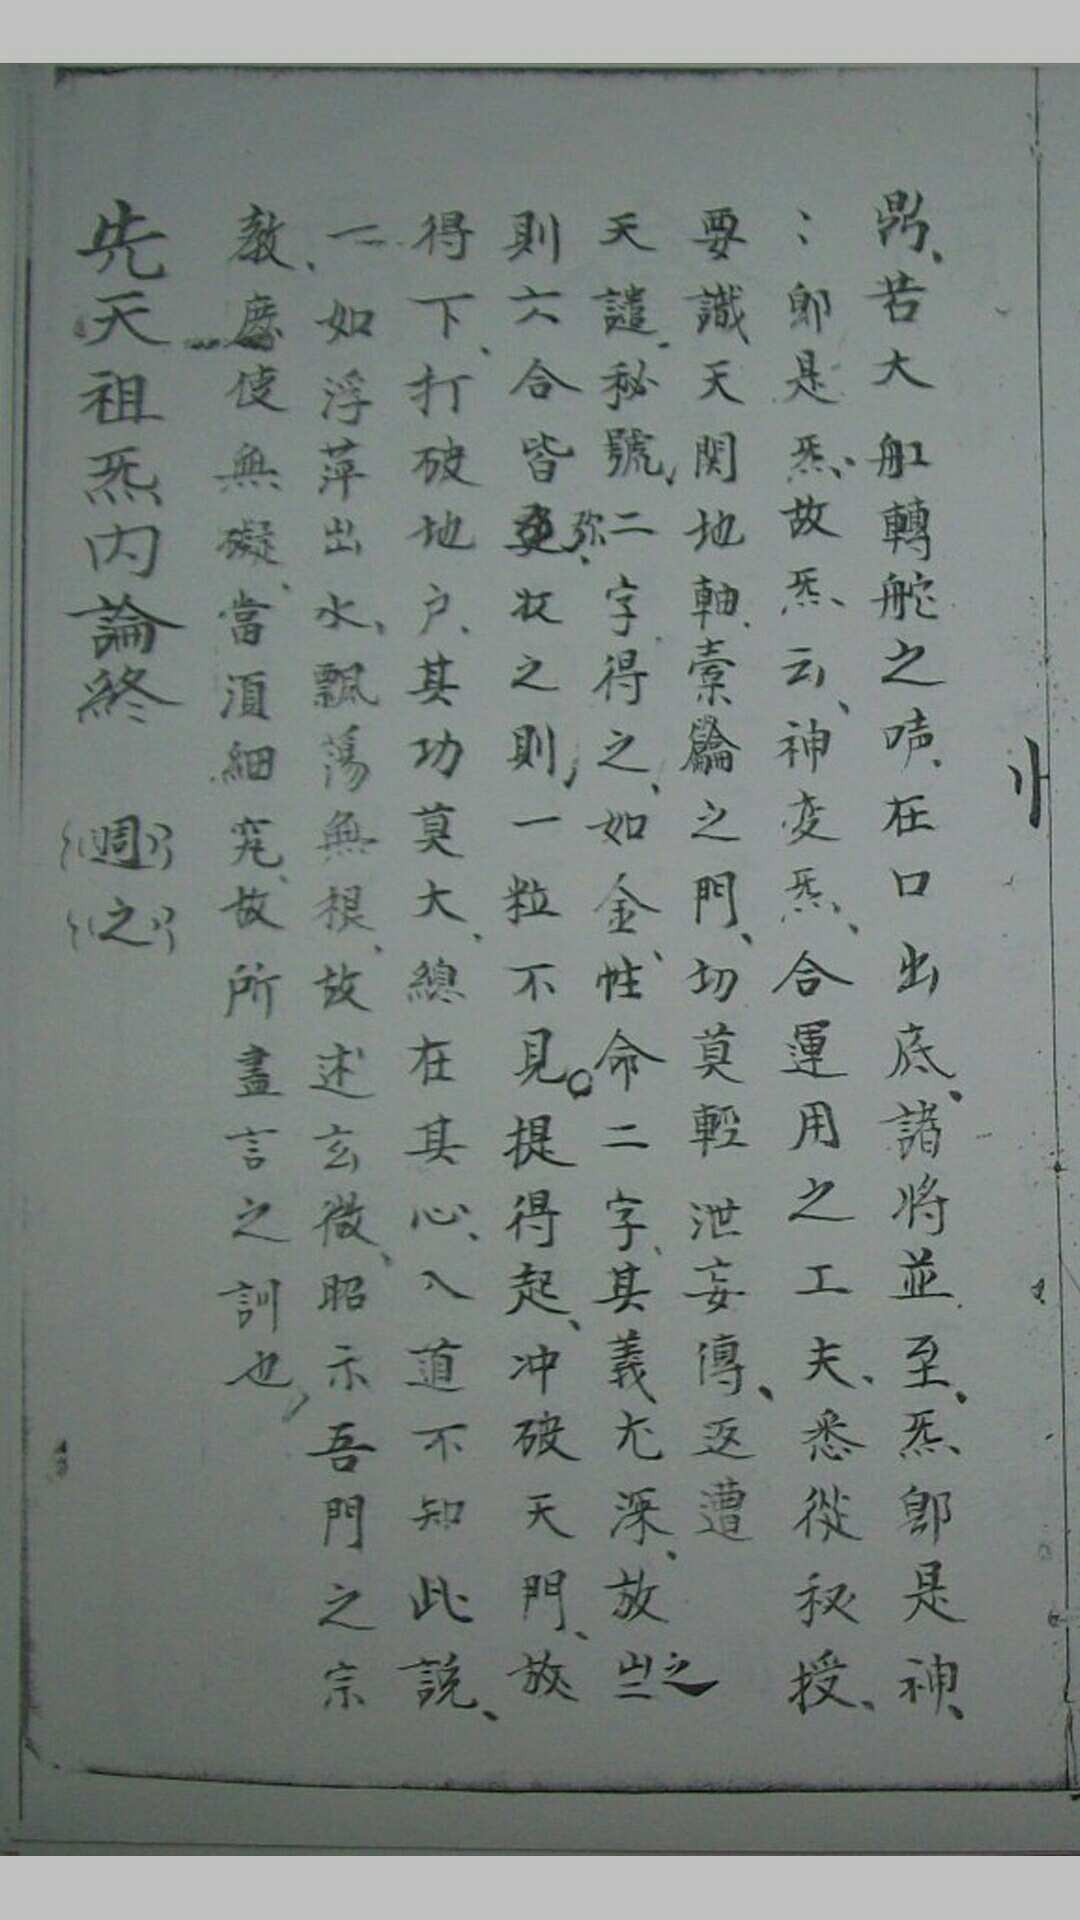 若大舡轉舵之吱、在口出底、諸將並至、炁、即是神、
：即是炁、故炁、云、神变炁、合運用之工夫、悉從秘授、
要識天関地軸、橐籥之門、切莫輕泄妄傳、返遭
天譴、秘號、二字得之、如金、性命二字、其義尤深、放之
則六合皆弥、收之則、一粒不見。提得起、冲破天門、放
得下、打破地户、其功莫大、總在其心、入道不知此說、
一如浮萍出水、飄蕩無根、故述玄微、昭示吾門之宗
教、庶使無礙、當須細究、故所盡言之訓也、
先天祖炁內論終 週之